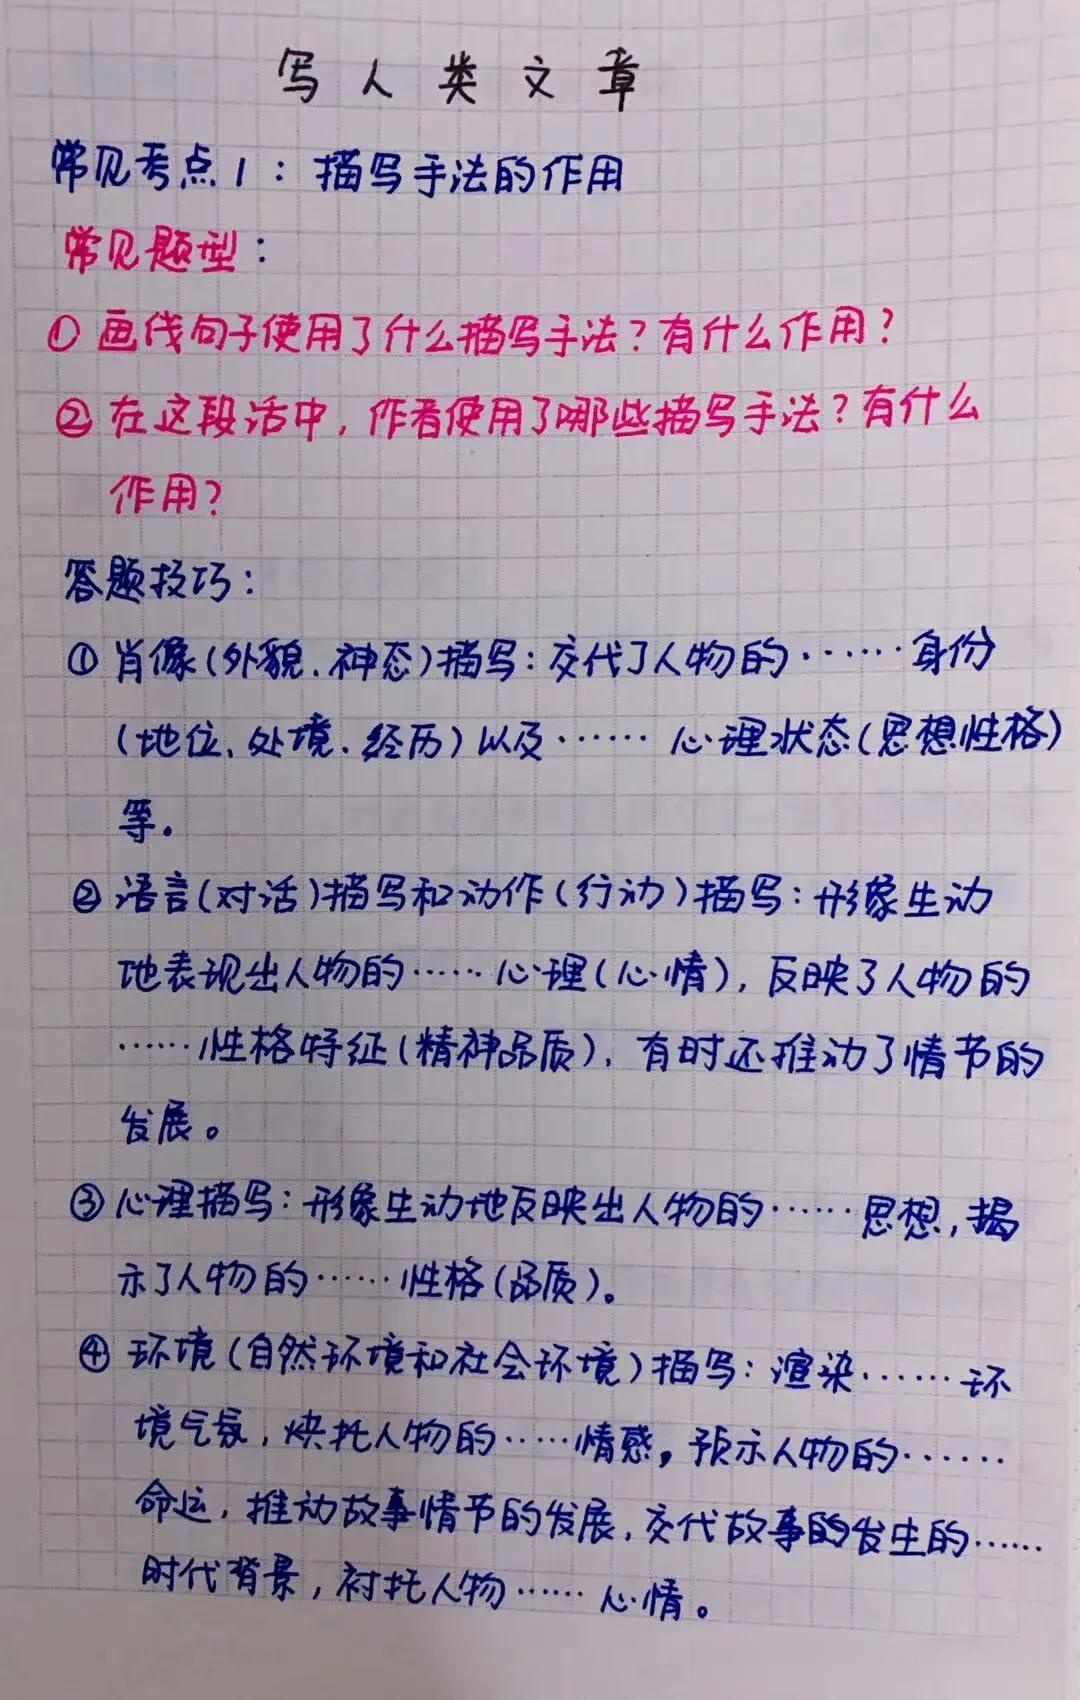 写人类文章
常见考点1：描写手法的作用
常见题型：
① 画线句子使用了什么描写手法？有什么作用？
② 在这段话中，作者使用了哪些描写手法？有什么
作用？
答题技巧：
① 肖像(外貌、神态)描写：交代了人物的……身份
(地位、处境、经历)以及……心理状态(思想性格)
等.
② 语言(对话)描写和动作(行动)描写：形象生动
地表现出人物的……心理(心情)，反映了人物的
……性格特征(精神品质)，有时还推动了情节的
发展。
③ 心理描写：形象生动地反映出人物的……思想，揭
示了人物的……性格(品质)。
④ 环境(自然环境和社会环境)描写：渲染……环
境气氛，烘托人物的……情感，预示人物的……
命运，推动故事情节的发展，交代故事的发生的……
时代背景，衬托人物……心情。